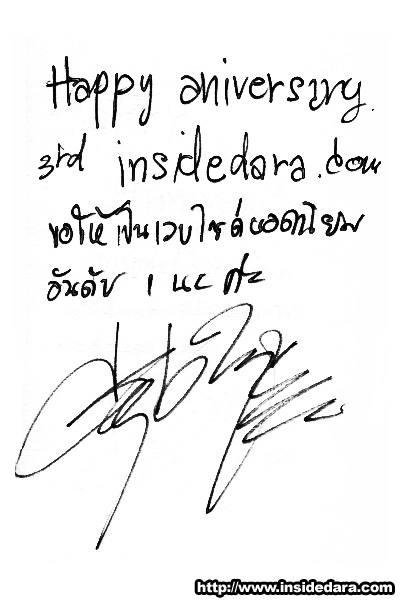 Happy aniversary.
3rd insidedara.com
ขอให้เป็นเวบไซด์ยอดนิยม
อันดับ 1 นะคะ
http://www.insidedara.com